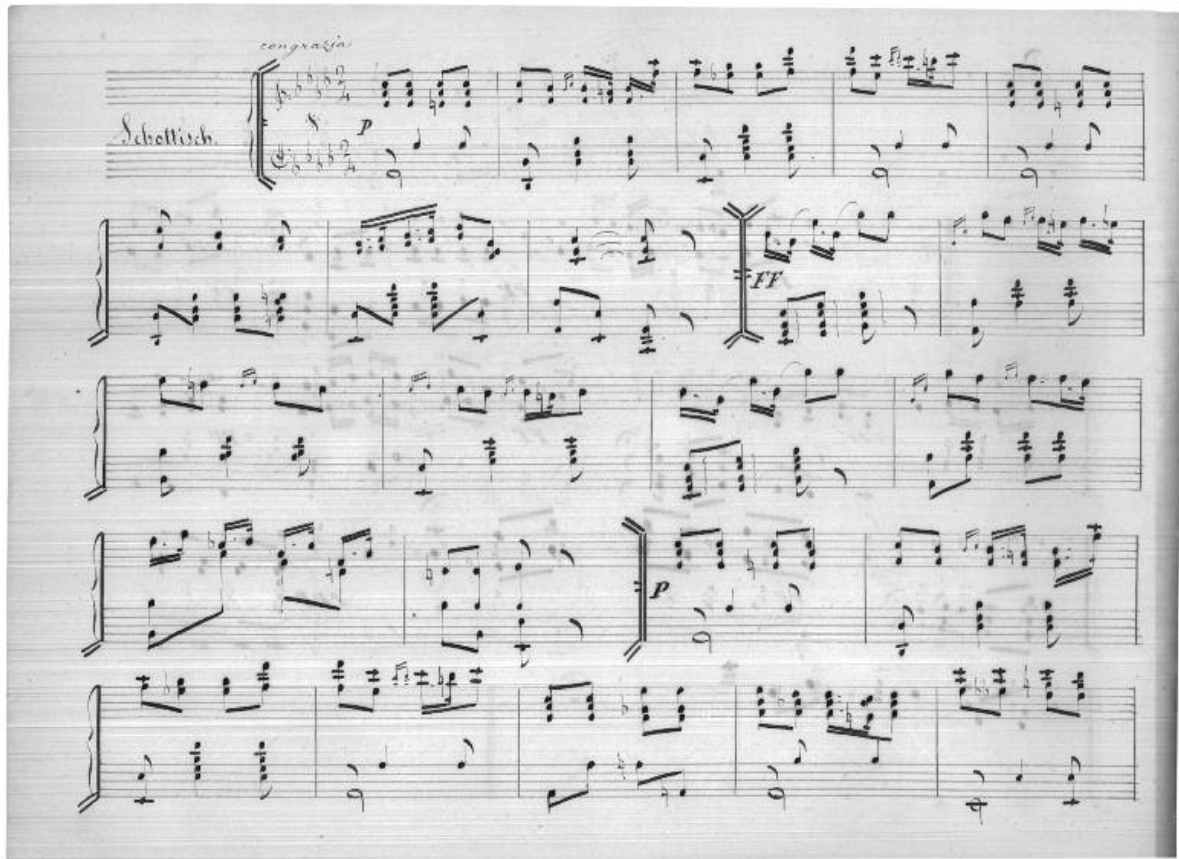 con grazia
Schottisch.
P
FF
P